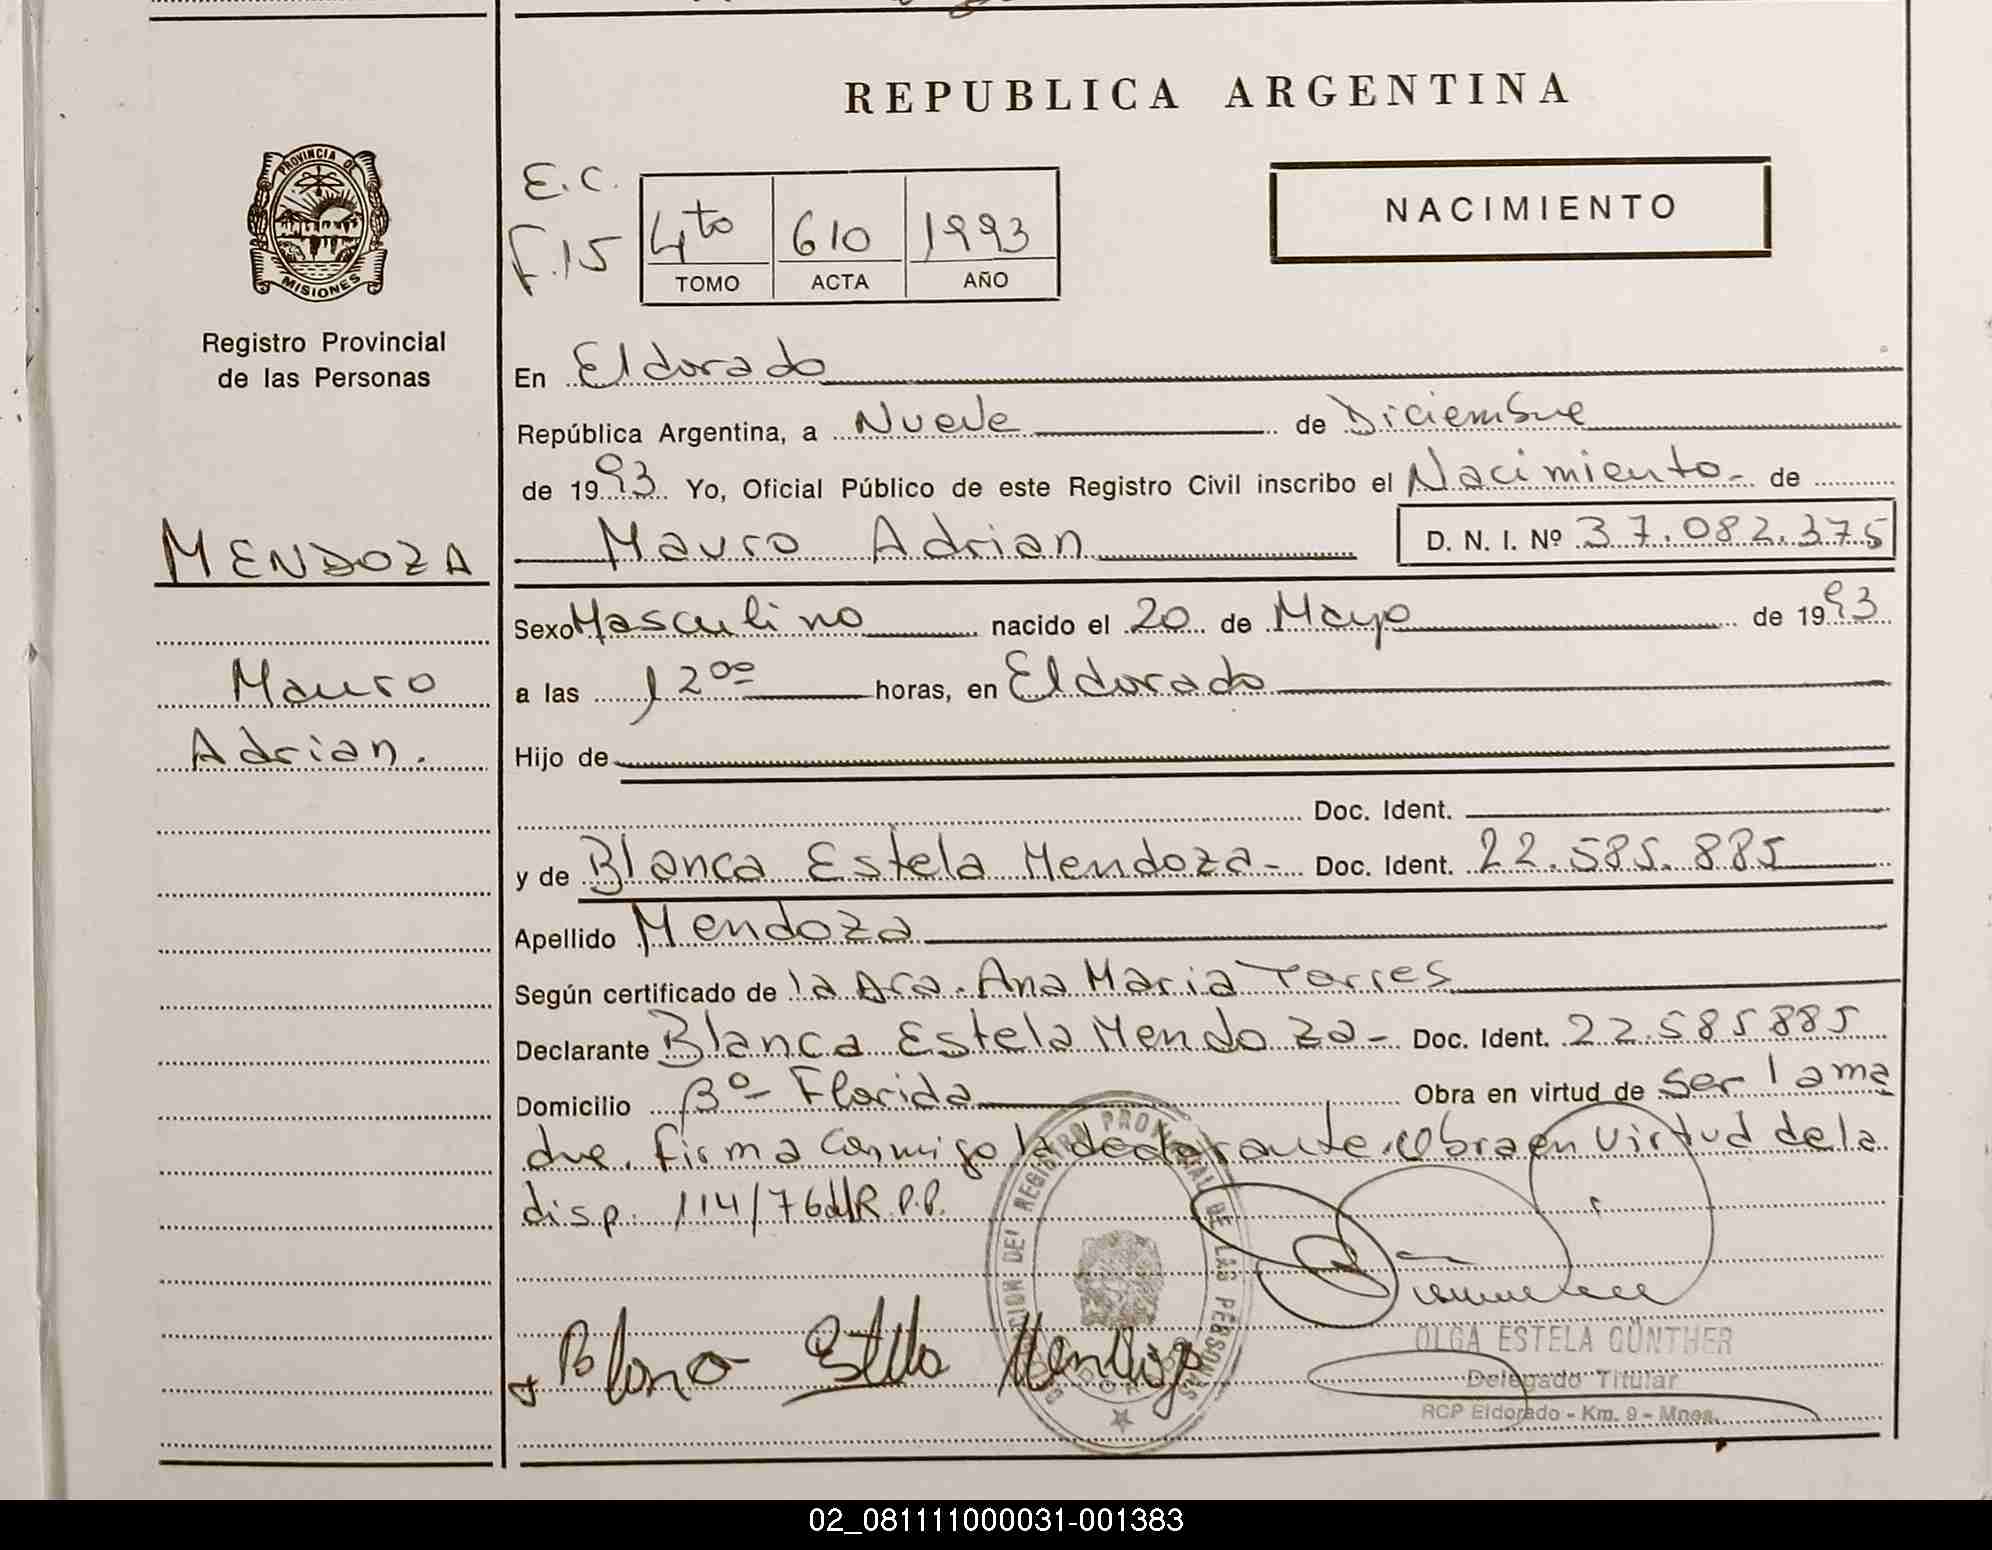 REPUBLICA ARGENTINA
PROVINCIA DE
MISIONES
Registro Provincial
de las Personas
E.C.
F.15
4to 610 1993
TOMO ACTA AÑO
NACIMIENTO
En Eldorado
República Argentina, a Nueve de Diciembre
de 1993 Yo, Oficial Público de este Registro Civil inscribo el Nacimiento- de
MENDOZA
Mauro Adrian D. N. I. Nº 37.082.375
Sexo Masculino nacido el 20 de Mayo de 1993
Mauro
a las 12ºº horas, en Eldorado
Adrian.
Hijo de
Doc. Ident.
y de Blanca Estela Mendoza- Doc. Ident. 22.585.885
Apellido Mendoza
Según certificado de la Dra. Ana Maria Torres
Declarante Blanca Estela Mendoza- Doc. Ident. 22.585885
Domicilio Bº Florida Obra en virtud de ser la ma
dre. firma conmigo la declarante. Obra en virtud de la
disp. 114/76 d/R.P.P.
REGISTRO PROVINCIAL DE LAS PERSONAS
Blanca Estela Mendoza
OLGA ESTELA GÜNTHER
Delegado Titular
RCP Eldorado - Km. 9 - Mnes.
02_081111000031-001383